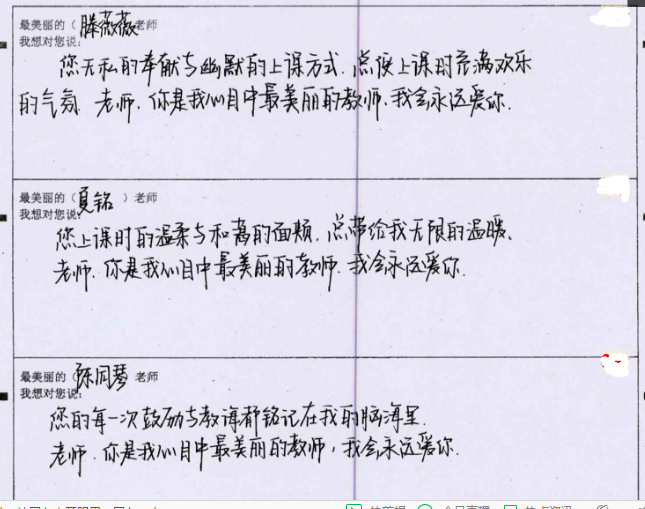 最美丽的（滕薇薇老师
我想对您说：
您无私的奉献与幽默的上课方式，总使上课时充满欢乐
的气氛。老师，你是我心目中最美丽的教师，我会永远爱你。
最美丽的（夏铭）老师
我想对您说：
您上课时的温柔与和蔼的面颊，总带给我无限的温暖、
老师，你是我心目中最美丽的教师，我会永远爱你。
最美丽的（陈同琴 老师
我想对您说：
您的每一次鼓励与教诲都铭记在我的脑海里。
老师，你是我心目中最美丽的教师，我会永远爱你。